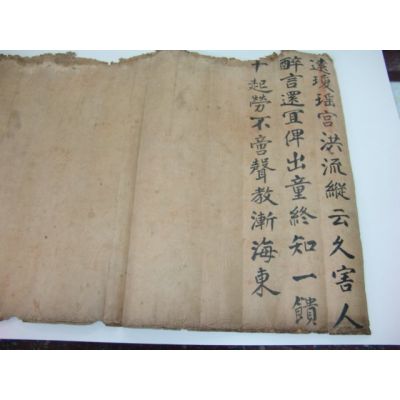 遠瓊瑤宮洪流縱云久害人
醉言還宜俾出童終知一饋
十起勞不啻聲教漸海東